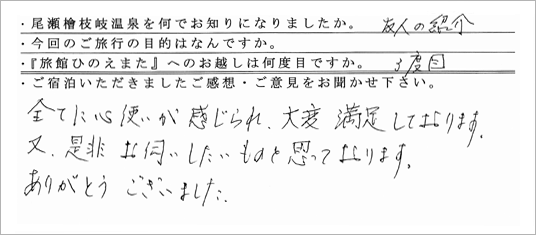 ・尾瀬檜枝岐温泉を何でお知りになりましたか。 友人の紹介
・今回のご旅行の目的はなんですか。
・『旅館ひのえまた』へのお越しは何度目ですか。 3度目
・ご宿泊いただきましたご感想・ご意見をお聞かせ下さい。
全てに心使いが感じられ、大変満足しております。
又、是非お伺いしたいものと思っております。
ありがとうございました。